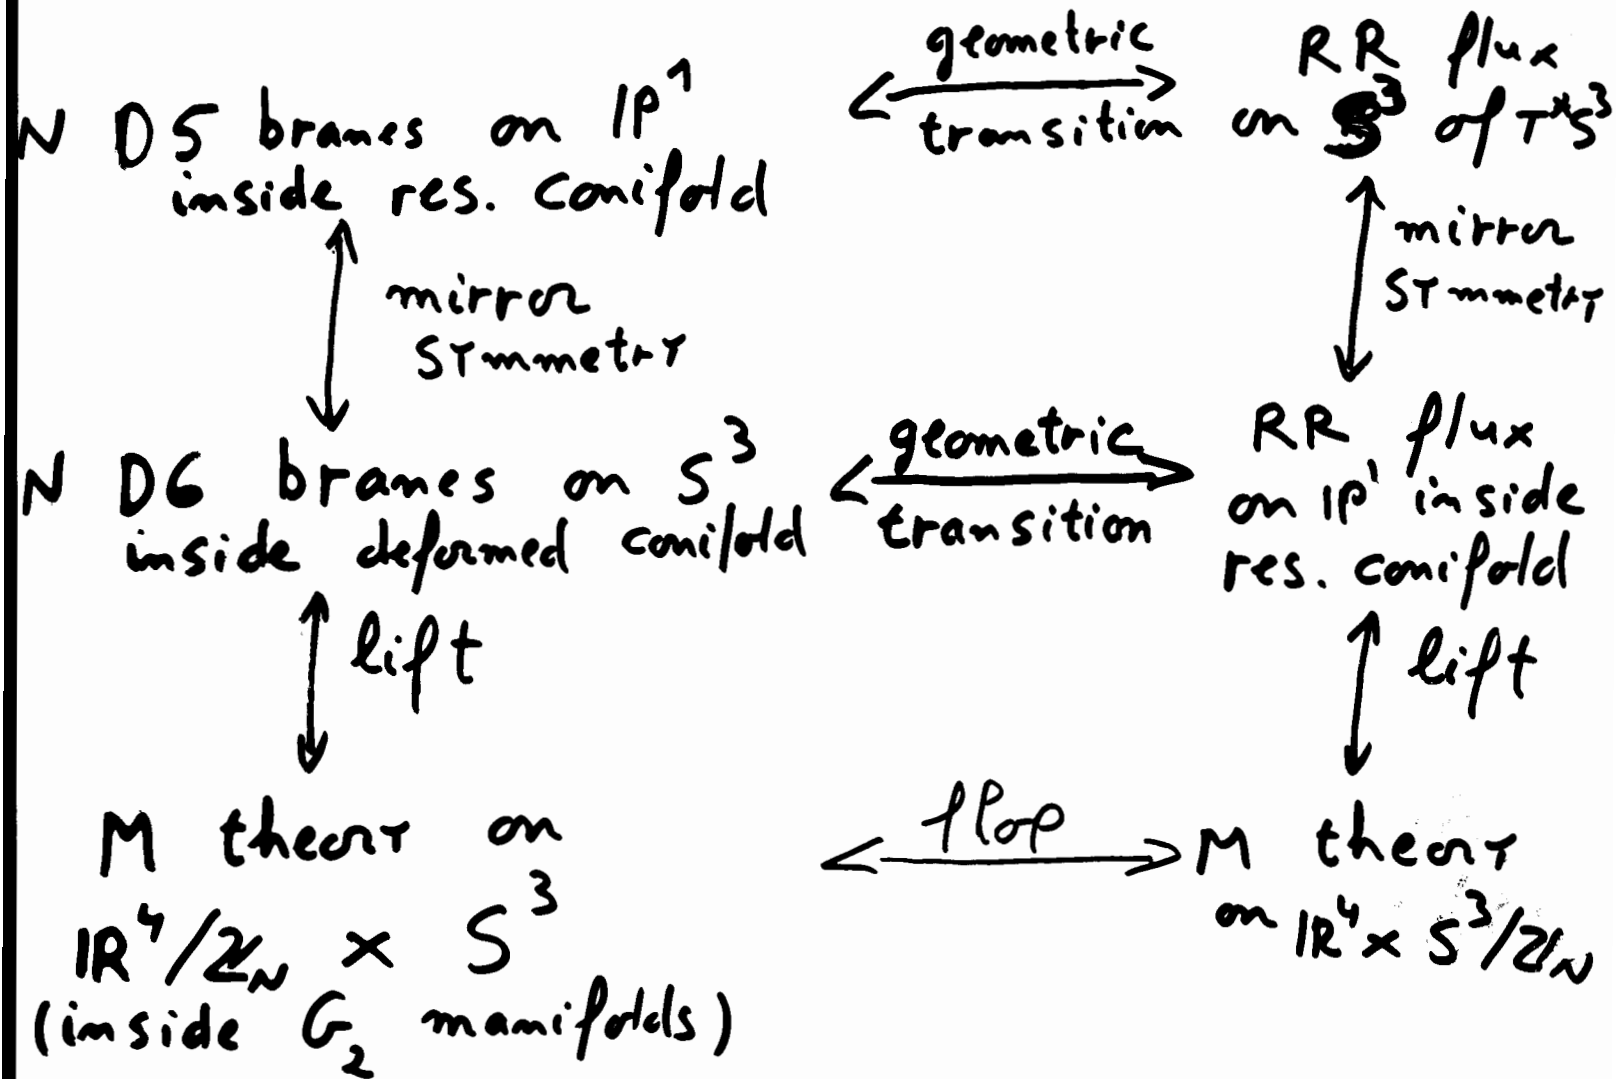 N D5 branes on IP¹
inside res. conifold
geometric
transition
RR flux
on S³ of T*S³
mirror
symmetry
mirror
symmetry
N D6 branes on S³
inside deformed conifold
geometric
transition
RR flux
on IP¹ inside
res. conifold
lift
lift
M theory on
IR⁴/ℤ_N × S³
(inside G₂ manifolds)
flop
M theory
on IR⁴ × S³/ℤ_N